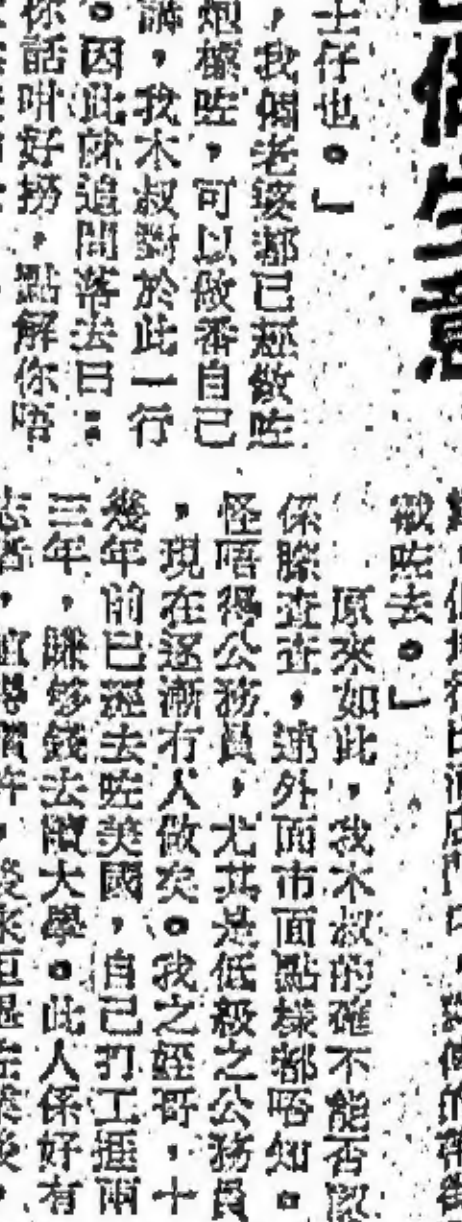 做生意
士仔也。」
，我個老婆都已經做咗
炮樑咗，可以做番自己
講，我木叔對於此一行
。因此就追問落去曰：
你話咁好撈，點解你唔
咗去。」
原來如此，我木叔的確不能否認
係矇查查，連外面市面點樣都唔知。
怪唔得公務員，尤其是低級之公務員
，現在逐漸冇人做矣。我之姪哥，十
幾年前已經去咗美國，自己打工捱兩
三年，賺够錢去讀大學。此人係好有
志